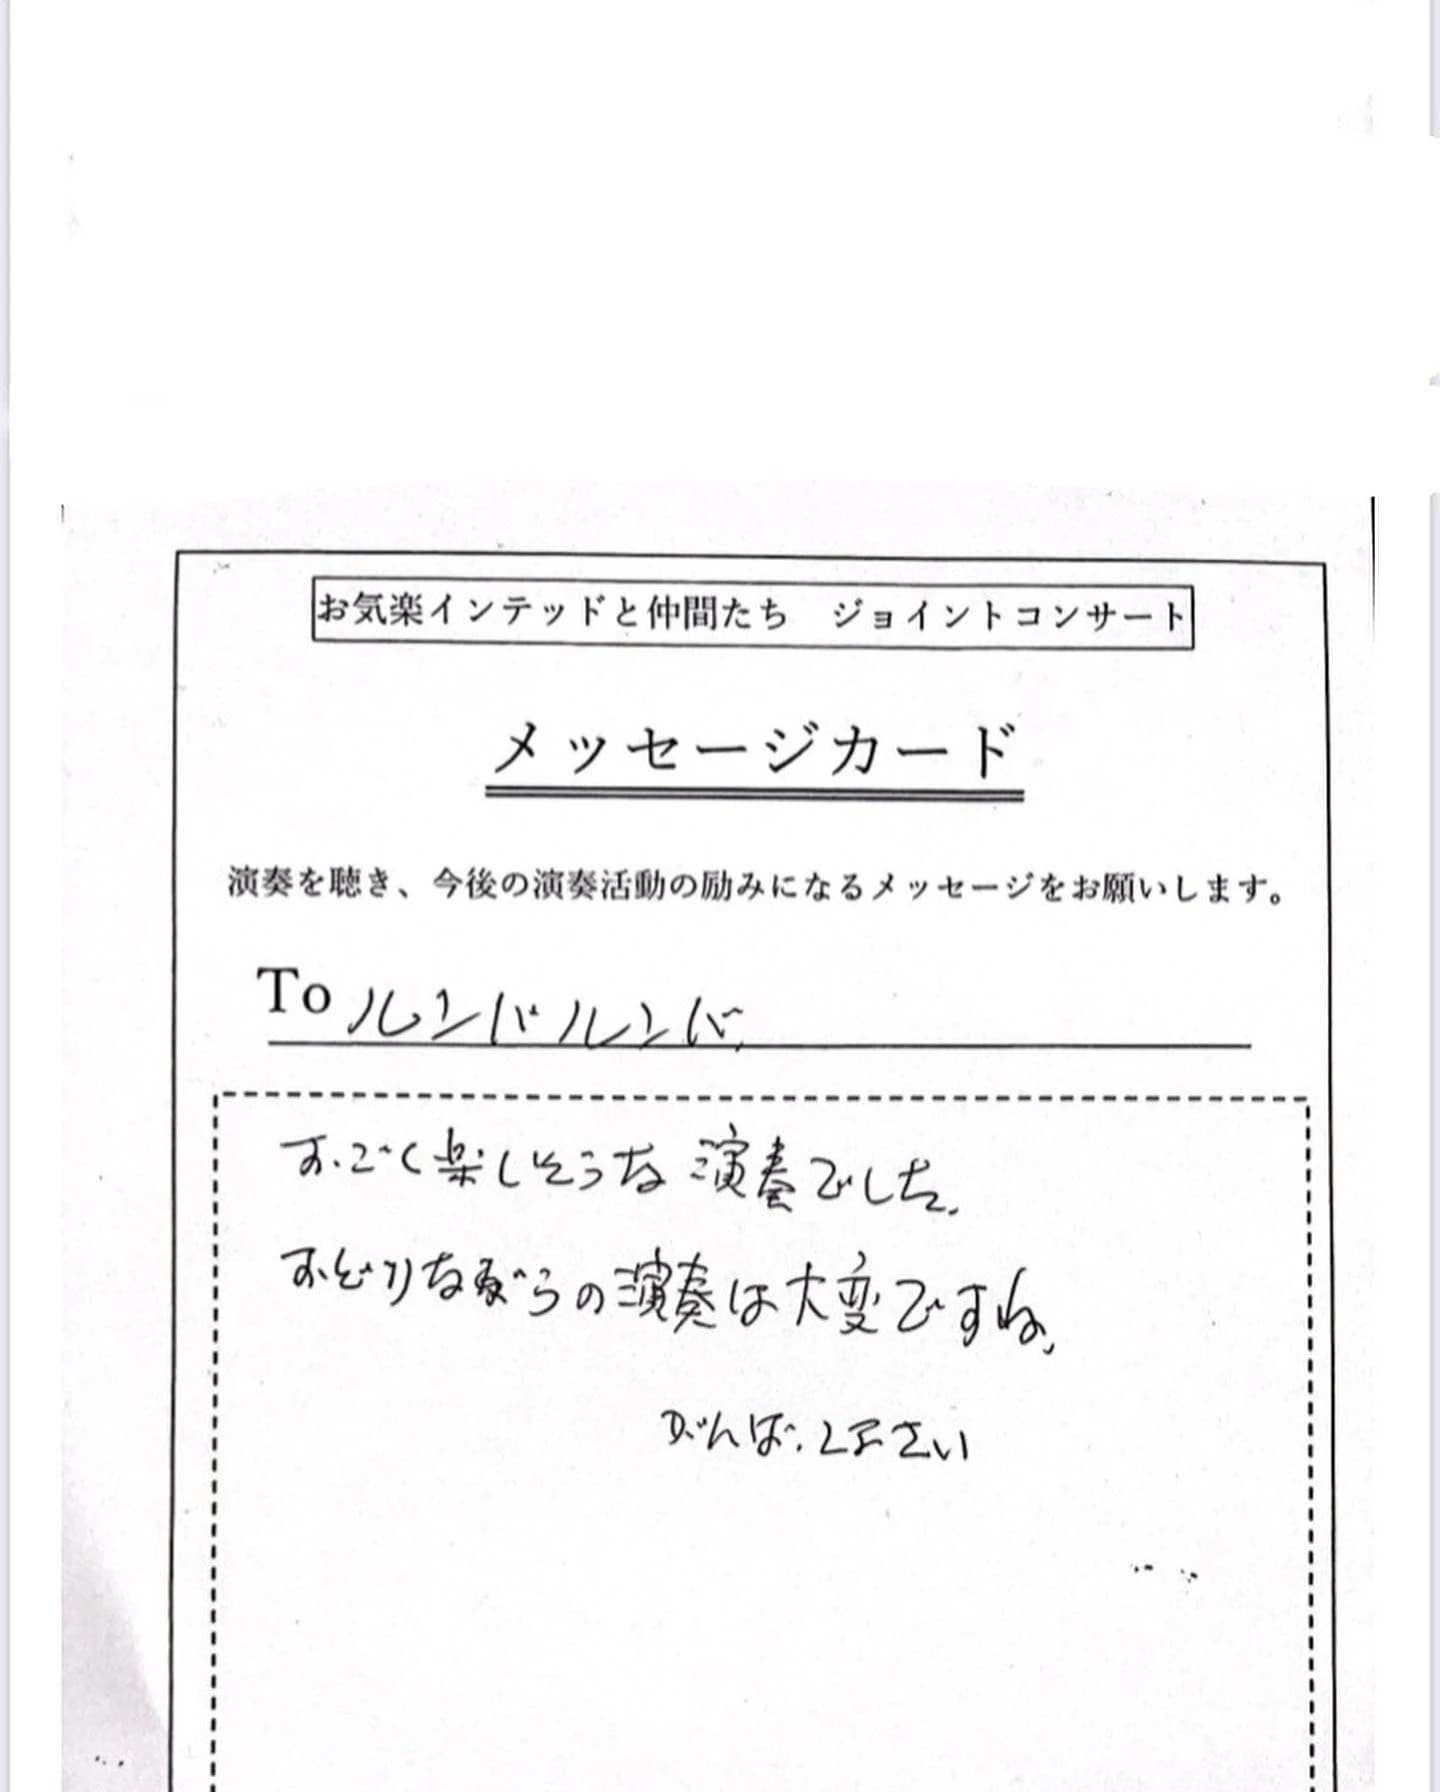 お気楽インテッドと仲間たち　ジョイントコンサート
メッセージカード
演奏を聴き、今後の演奏活動の励みになるメッセージをお願いします。
To ルンバルンバ
すごく楽しそうな演奏でした。
おどりながらの演奏は大変ですね。
がんばって下さい